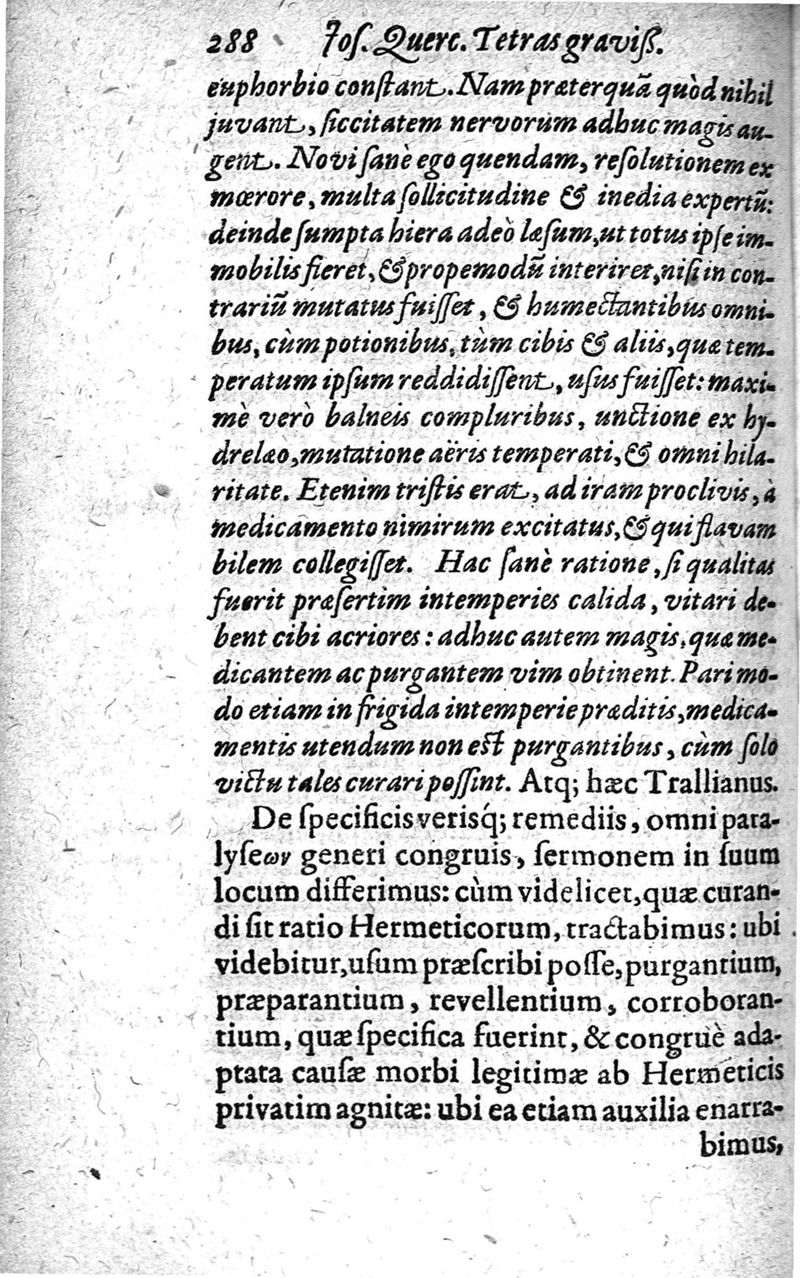 288 Ios. Querc. Tetras graviß.
euphorbio constant. Nam præterquã quòd nihil
juvant, siccitatem nervorum adhuc magis au-
gent. Novi sanè ego quendam, resolutionem ex
mœrore, multa sollicitudine & inedia expertũ:
deinde sumpta hiera adeò læsum, ut totus ipse im-
mobilis fieret, & propemodũ interiret, nisi in con-
trariũ mutatus fuisset, & humectantibus omni-
bus, cùm potionibus, tùm cibis & aliis, quæ tem-
peratum ipsum reddidissent, usus fuisset: maxi-
mè verò balneis compluribus, unctione ex hy-
drelæo, mutatione aëris temperati, & omni hila-
ritate. Etenim tristis erat, ad iram proclivis, à
medicamento nimirum excitatus, & qui flavam
bilem collegisset. Hac sanè ratione, si qualitas
fuerit præsertim intemperies calida, vitari de-
bent cibi acriores: adhuc autem magis, quæ me-
dicantem ac purgantem vim obtinent. Pari mo-
do etiam in frigida intemperie præditis, medica-
mentis utendum non est purgantibus, cùm solo
victu tales curari possint. Atq; hæc Trallianus.
De specificis verisq́; remediis, omni para-
lyseων generi congruis, sermonem in suum
locum differimus: cùm videlicet, quæ curan-
di sit ratio Hermeticorum, tractabimus: ubi
videbitur, usum præscribi posse, purgantium,
præparantium, revellentium, corroboran-
tium, quæ specifica fuerint, & congruè ada-
ptata causæ morbi legitimæ ab Hermeticis
privatim agnitæ: ubi ea etiam auxilia enarra-
bimus,